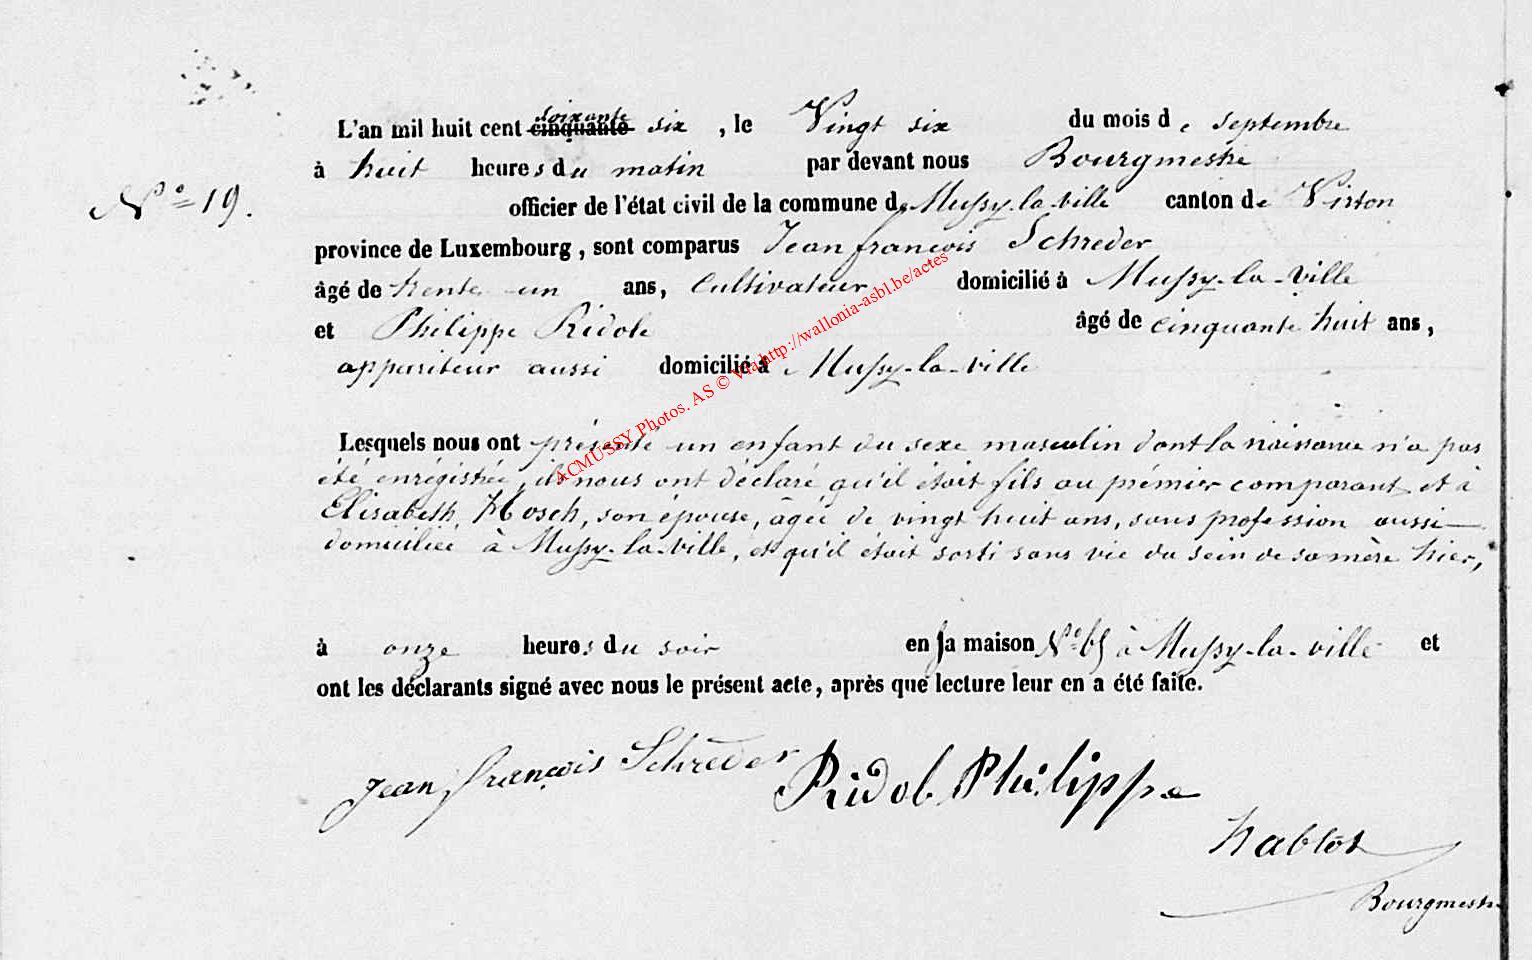 L'an mil huit cent cinquante soixante six , le Vingt six du mois de septembre
à huit heures du matin par devant nous Bourgmestre
N.º 19. officier de l'état civil de la commune de Mussy-la-ville canton de Virton
province de Luxembourg, sont comparus Jean françois Schreder
âgé de trente-un ans, Cultivateur domicilié à Mussy-la-Ville
et Philippe Ridole âgé de cinquante huit ans,
appariteur aussi domicilié à Mussy-la-ville
Lesquels nous ont présenté un enfant du sexe masculin dont la naissance n'a pas
été enrégistrée, ils nous ont déclaré qu'il était fils au prémier comparant et à
Elisabeth Hosch, son épouse, âgée de vingt huit ans, sans profession aussi
domiciliée à Mussy-la-ville, et qu'il était sorti sans vie du sein de sa mère hier,
à onze heures du soir en sa maison Nº 65 à Mussy-la-ville et
ont les déclarants signé avec nous le présent acte, après que lecture leur en a été faite.
Jean françois Schreder Ridole Philippe
Nablot
Bourgmestre
ACMUSSY Photos. AS © Via http://wallonia-asbl.be/actes